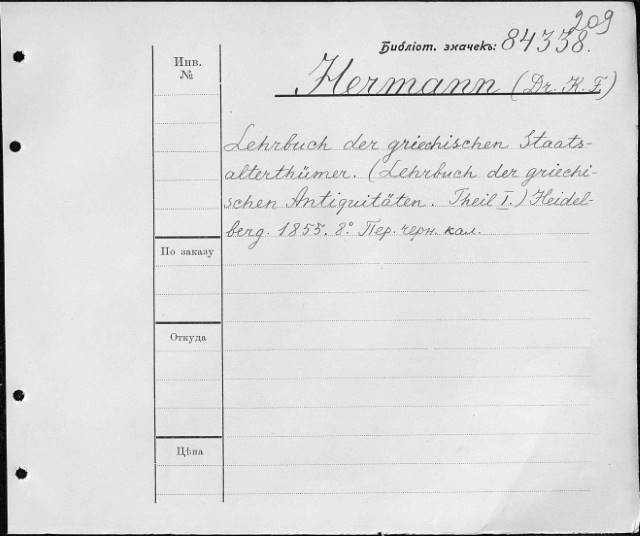 209
Библіот. значекъ: 84338.
Инв.
№
Hermann (Dr. K. F.)
Lehrbuch der griechischen Staats-
alterthümer. (Lehrbuch der griechi-
schen Antiquitäten. Theil I.) Heidel-
berg. 1855. 8° Пер. черн. кал.
По заказу
Откуда
Цѣна